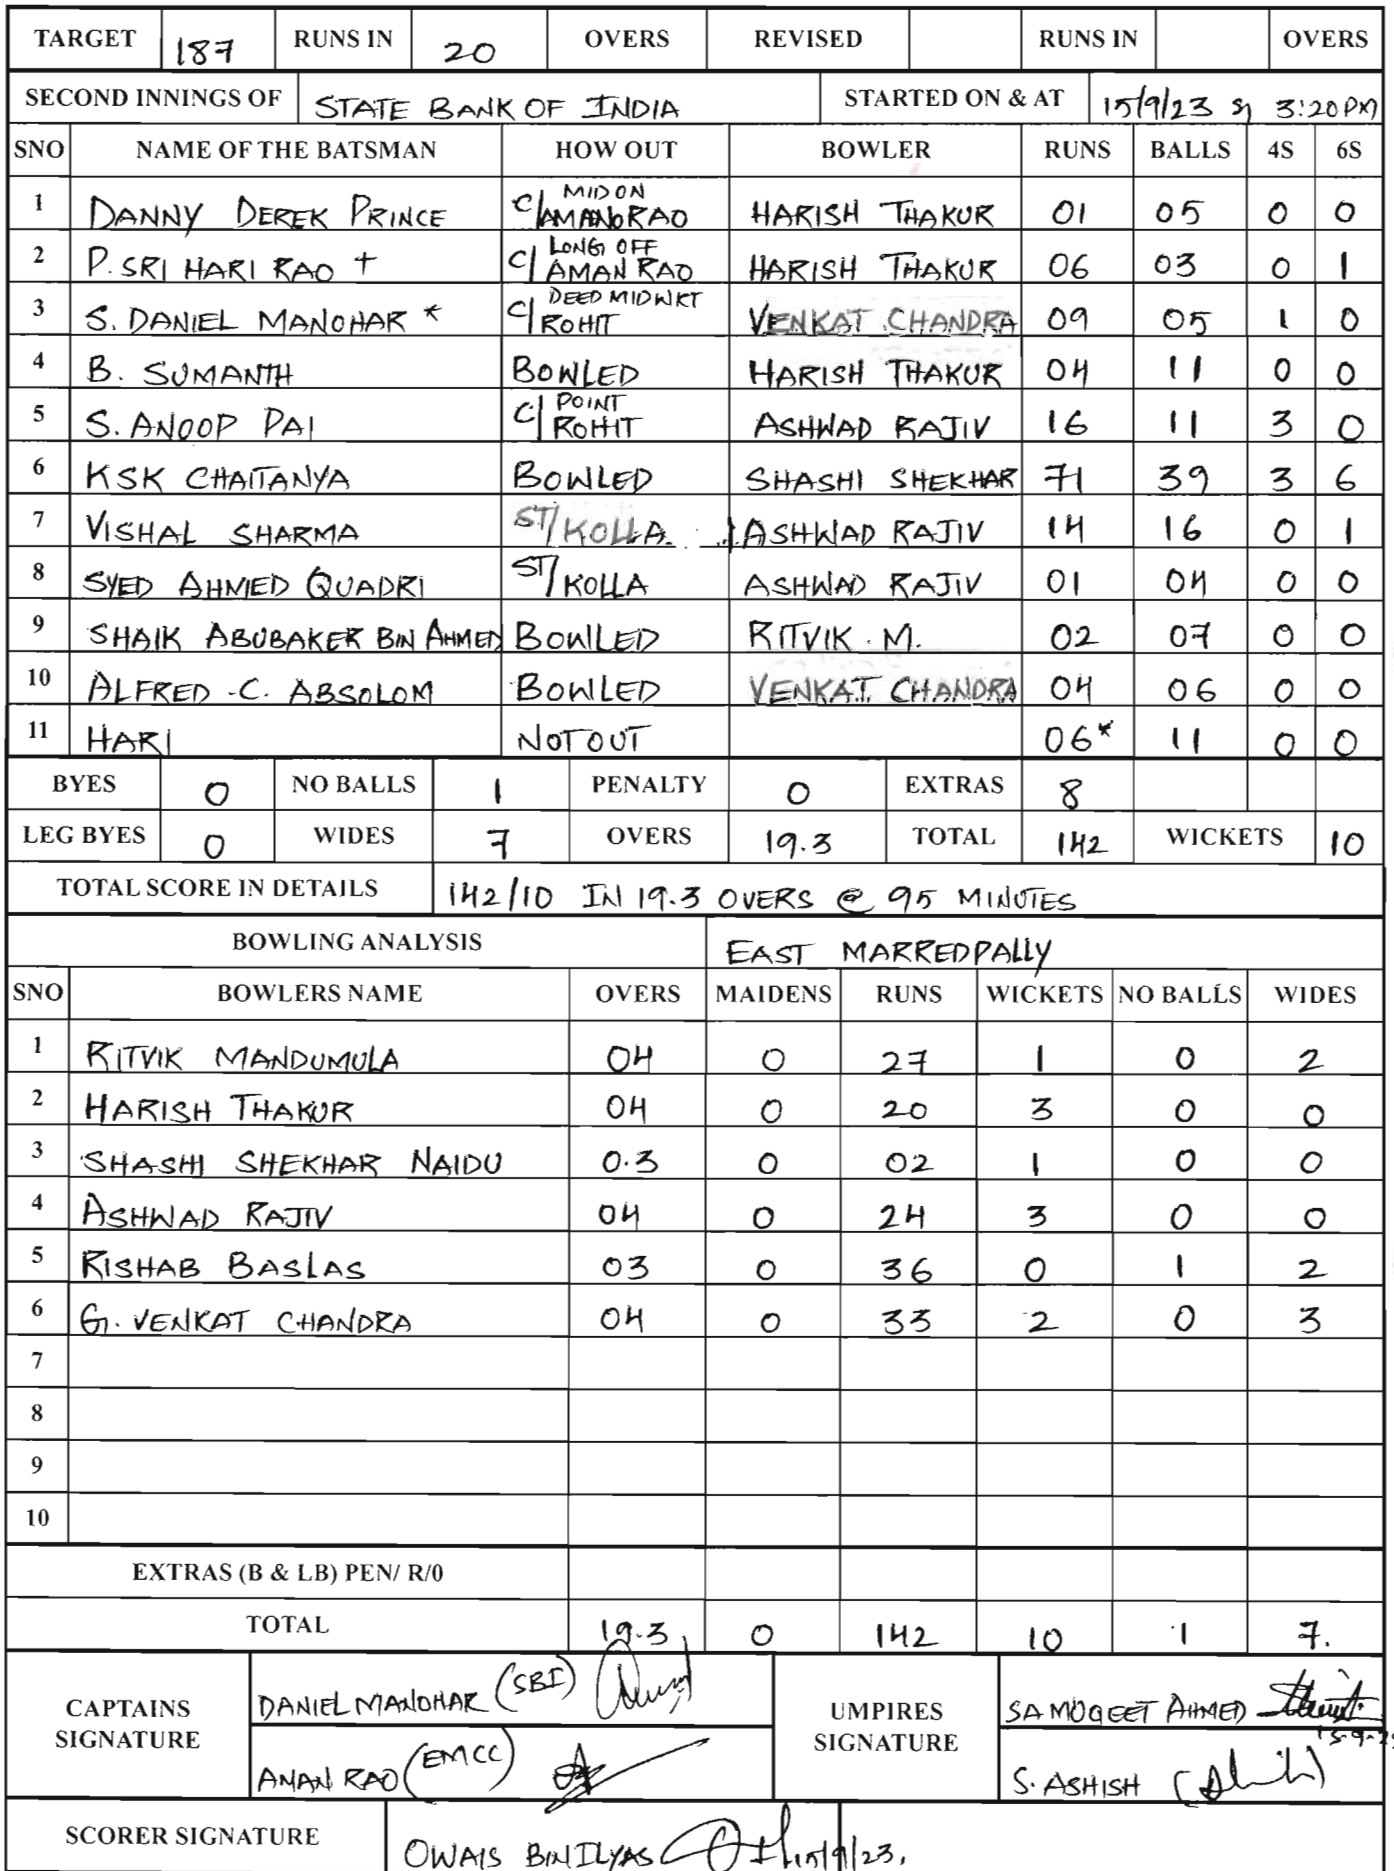 TARGET 187 RUNS IN 20 OVERS REVISED RUNS IN OVERS
SECOND INNINGS OF STATE BANK OF INDIA STARTED ON & AT 15/9/23 3:20PM
SNO NAME OF THE BATSMAN HOW OUT BOWLER RUNS BALLS 4S 6S
1 DANNY DEREK PRINCE C/ MID ON AMAN RAO HARISH THAKUR 01 05 0 0
2 P. SRI HARI RAO + C/ LONG OFF AMAN RAO HARISH THAKUR 06 03 0 1
3 S. DANIEL MANOHAR * C/ DEED MIDWKT ROHIT VENKAT CHANDRA 09 05 1 0
4 B. SUMANTH BOWLED HARISH THAKUR 04 11 0 0
5 S. ANOOP PAI C/ POINT ROHIT ASHWAD RAJIV 16 11 3 0
6 KSK CHAITANYA BOWLED SHASHI SHEKHAR 71 39 3 6
7 VISHAL SHARMA ST/ KOLLA ASHWAD RAJIV 14 16 0 1
8 SYED AHMED QUADRI ST/ KOLLA ASHWAD RAJIV 01 04 0 0
9 SHAIK ABUBAKER BIN AHMED BOWLED RITVIK M. 02 07 0 0
10 ALFRED .C. ABSOLOM BOWLED VENKAT CHANDRA 04 06 0 0
11 HARI NOTOUT 06* 11 0 0
BYES 0 NO BALLS 1 PENALTY 0 EXTRAS 8
LEG BYES 0 WIDES 7 OVERS 19.3 TOTAL 142 WICKETS 10
TOTAL SCORE IN DETAILS 142/10 IN 19.3 OVERS @ 95 MINUTES
BOWLING ANALYSIS EAST MARREDPALLY
SNO BOWLERS NAME OVERS MAIDENS RUNS WICKETS NO BALLS WIDES
1 RITVIK MANDUMULA 04 0 27 1 0 2
2 HARISH THAKUR 04 0 20 3 0 0
3 SHASHI SHEKHAR NAIDU 0.3 0 02 1 0 0
4 ASHWAD RAJIV 04 0 24 3 0 0
5 RISHAB BASLAS 03 0 36 0 1 2
6 G. VENKAT CHANDRA 04 0 33 2 0 3
7
8
9
10
EXTRAS (B & LB) PEN/ R/0
TOTAL 19.3 0 142 10 1 7.
CAPTAINS SIGNATURE DANIEL MANOHAR (SBI) UMPIRES SIGNATURE SA MUQEET AHMED 15-9-23
AMAN RAO (EMCC) S. ASHISH
SCORER SIGNATURE OWAIS BIN ILYAS 15/9/23.